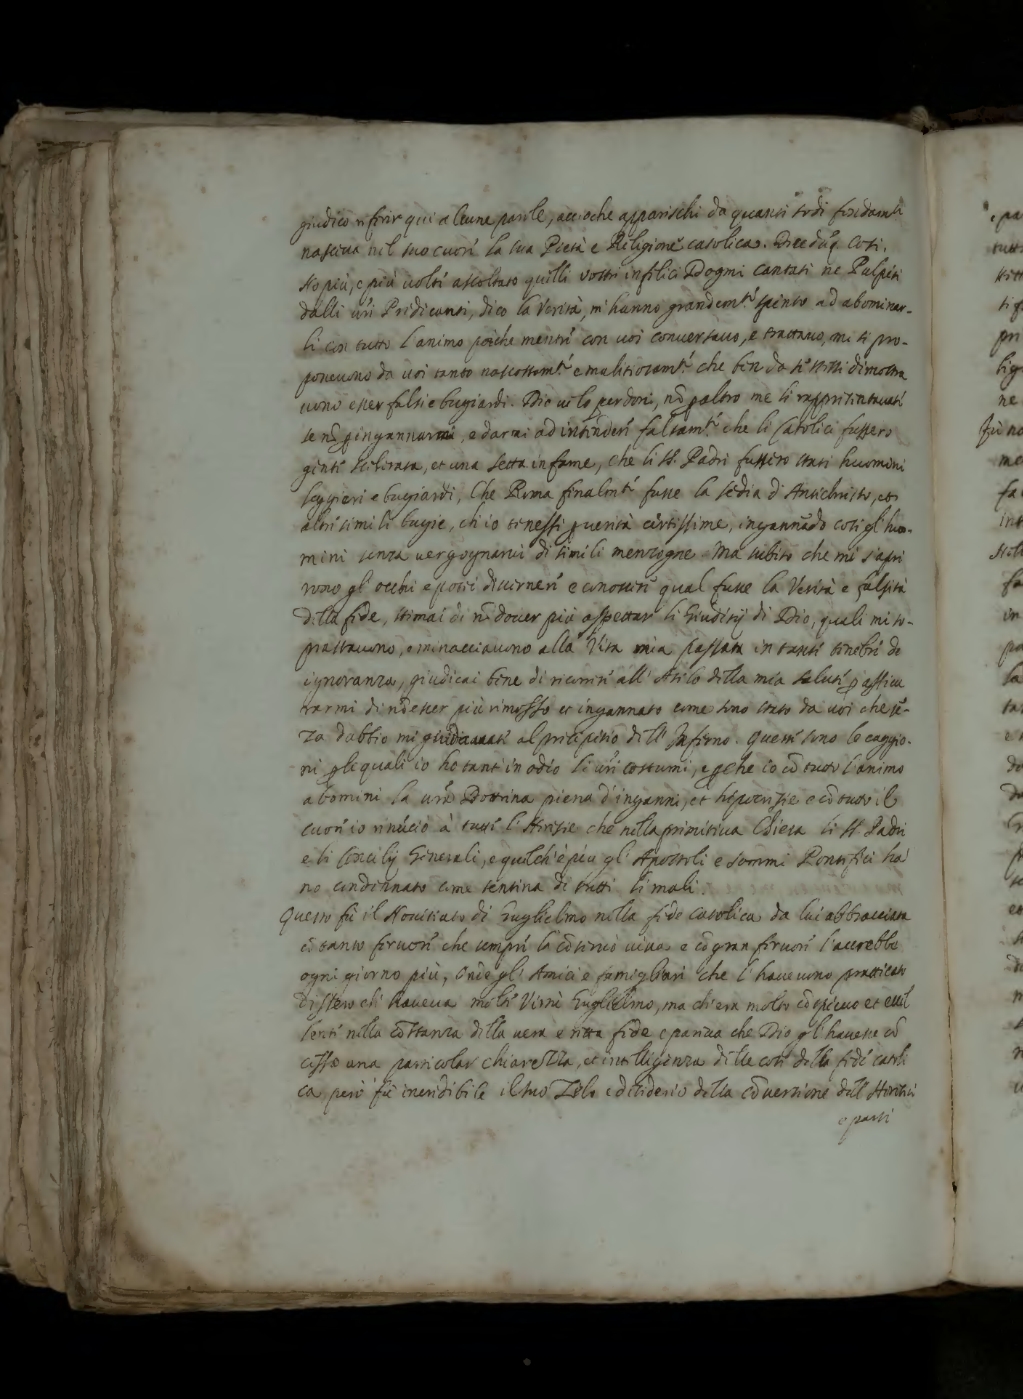 giudico riferir quì alcune parole, accioche apparischi da quanti sodi fondam.ti
nasceva nel suo cuore la sua Pietà e Religione catolica. Dice dūq̄ così.
Ho più, e più volte ascoltato quelli vostri infelici Dogmi cantati ne Pulpiti
dalli vr̄i Predicanti, dico la Verità, m'hanno grandem.te spinto ad abominar-
li con tutto l'animo poiche mentre con voi conversavo, e trattavo, mi si pro-
ponevono da voi tanto nascostam.te e malitiosam.te che ben da se stessi dimostra
vono esser falsi e bugiardi. Dio ve lo perdoni, nō p altro me li rappresentavate
se nō p ingannarmi, e darmi ad intendere falsam.te che li Catolici fussero
gente scelerata, et una setta infame, che li S. Padri fussero stati huomini
leggieri e bugiardi, Che Roma finalm.te fusse la sedia d'Antichristo, et
altri simili bugie, ch'io tenessi p verità certissime, ingannādo così gl'huo-
mini senza vergognarvi di simili menzogne. Ma subito che mi s'apri
rono gl'occhi e potei discernere e conoscere qual fusse la Verità e falsità
della fede, stimai di nō dover più aspettar li Giuditij di Dio, quali mi so-
prastavono, e minacciavono alla Vita mia passata in tante tenebre de
ignoranza, giudicai bene di ricorrere all'Asilo della mia salute p assicu
rarmi di nō esser più rimosso et ingannato come sono stato da voi che sē-
za dubbio mi guidavate al precipitio dell'Inferno. Queste sono le caggio-
ni p le quali io ho tanto in odio li vr̄i costumi, e p che io cō tutto l'animo
abomini la vr̄a Dottrina piena d'inganni, et hipocrisie e cō tutto il
cuore io rinūcio à tutte l'Heresie che nella primitiva Chiesa li S. Padri
e li Concilij Generali, e quel ch'è più gl'Apostoli e Sommi Pontefici hā
no condennato come sentina di tutti li mali.
Questo fù il Novitiato di Guglielmo nella fede catolica da lui abbracciata
cō tanto fervore che sempre la cōservò viva e cō gran fervore l'accrebbe
ogni giorno più, Onde gl'Amici e famigliari che l'havevono praticato
dissero ch'haveva molte Virtù Guglielmo, ma ch'era molto cōspicuo et eccel
lente nella cōstanza della vera e retta fede e pareva che Dio gl'havesse cō
cesso una particolar chiarezza, et intelligenza delle cose della fede catoli
ca, però fù incredibile il suo Zelo e desiderio della cōversione dell'Heretici
e parti